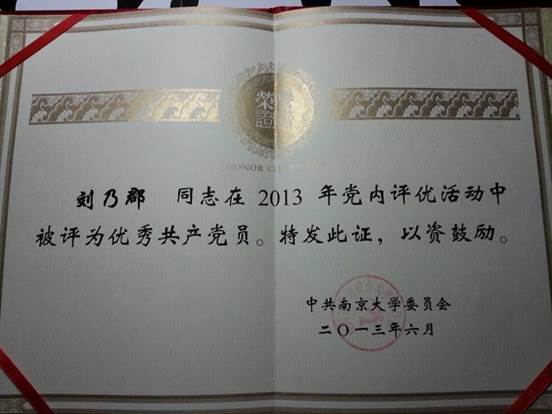 榮
證
HONOR C
刘乃郡 同志在 2013 年党内评优活动中
被评为优秀共产党员。特发此证，以资鼓励。
中共南京大学委员会
二〇一三年六月